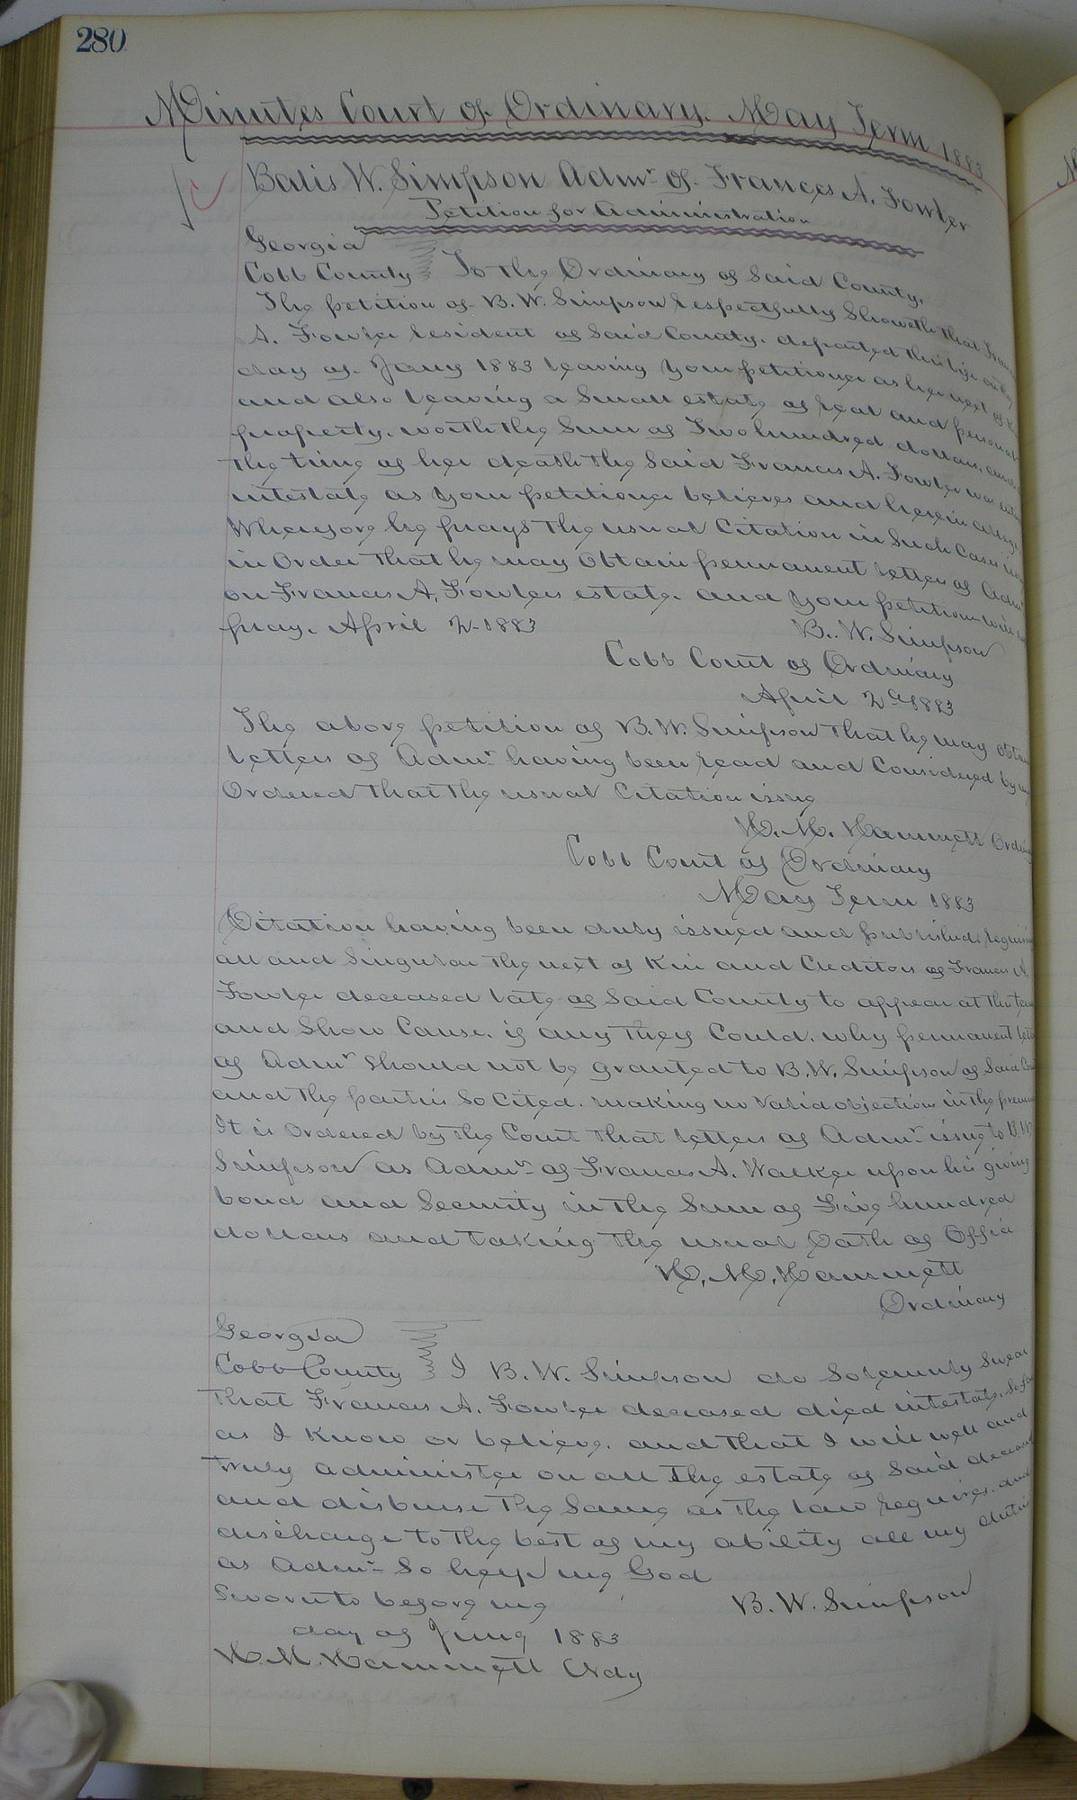 280
Minutes Court of Ordinary. May Term 1883
Balis W. Simpson Admr of Frances A. Fowler
Petition for Administration
Georgia
Cobb County To the Ordinary of Said County.
The petition of B. W. Simpson respectfully Showeth that
A. Fowler resident of Said County. departed this life on the
day of Jany 1883 leaving your petitioner as her next of
and also leaving a Small estate of real and personal
property. worth the Sum of Two hundred dollars. and
the time of her death the Said Frances A. Fowler was
intestate as your petitioner believes and herein
Wherefore he prays the usual Citation in Such Cases
in Order that he may Obtain permanent letters of Admr
on Frances A. Fowlers estate. and your petitioner will
pray. April 2-1883
B. W. Simpson
Cobb Court of Ordinary
April 2d 1883
The above petition of B. W. Simpson that he may obtain
letters of Admr having been read and Considered by
Ordered that the usual Citation issue
H. M. Hammett
Cobb Court of Ordinary
May Term 1883
Citation having been duly issued and published
all and Singular the next of Kin and Creditors of Frances A.
Fowler deceased late of Said County to appear at this
and Show Cause. if any they Could. why permanent
of Admr should not be granted to B. W. Simpson of Said
and the parties So Cited. making no Valid objections in the
It is Ordered by the Court that letters of Admr issue to B. W.
Simpson as Admr of Frances A. Walker upon his giving
bond and Security in the Sum of Five hundred
dollars and taking the usual Oath of Office
H. M. Hammett
Ordinary
Georgia
Cobb County I B. W. Simpson do Solemnly Swear
that Frances A. Fowler deceased died intestate. So far
as I Know or believe. and that I will well and
truly administer on all the estate of Said deceased
and disburse the Same as the law requires. and
discharge to the best of my ability all my duties
as Admr So help me God
Sworn to before me B. W. Simpson
day of June 1883
H. M. Hammett Ordy